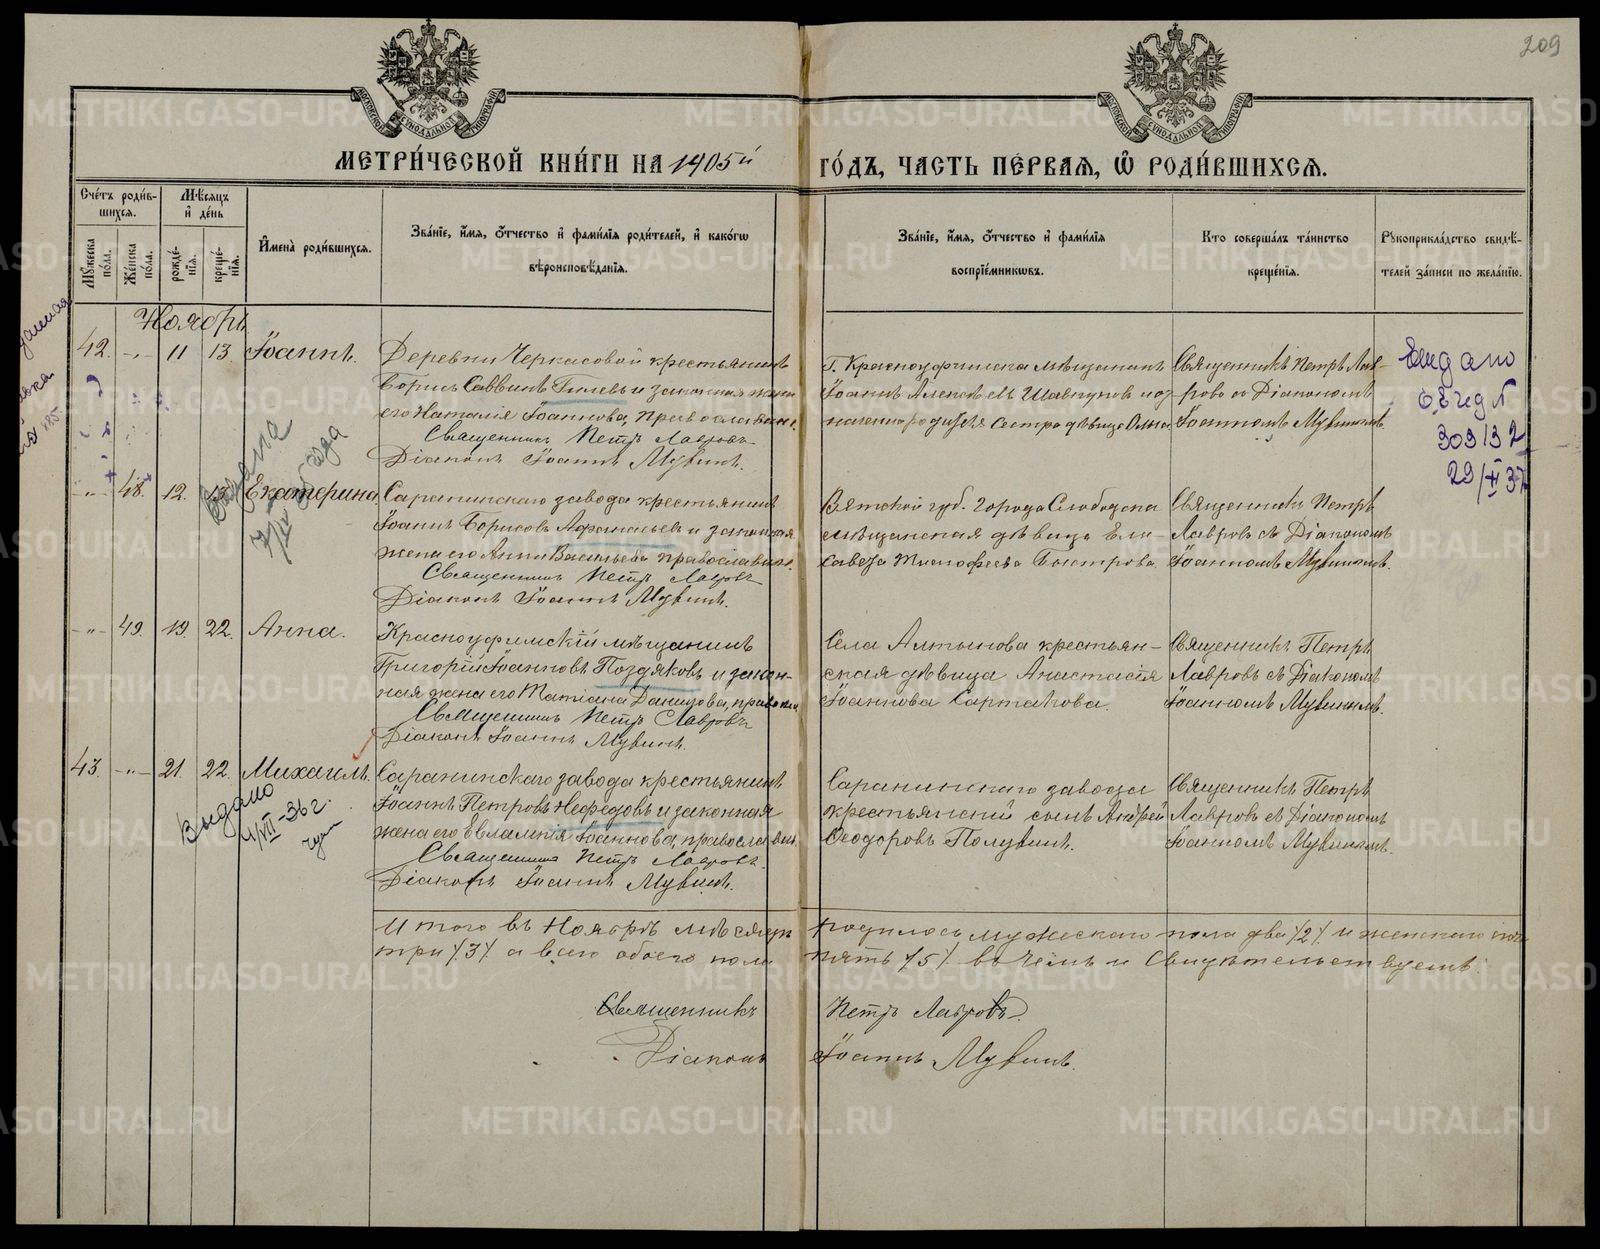 209
МОСКОВСКОЙ СѴНОДАЛЬНОЙ ТИПОГРАФІИ
МОСКОВСКОЙ СѴНОДАЛЬНОЙ ТИПОГРАФІИ
МЕТРИ́ЧЕСКОЙ КНИ́ГИ НА 1905й ГО́ДЪ, ЧАСТЬ ПЕ́РВАѦ, Ѽ РОДИ́ВШИХСѦ.
Сче́тъ роди́в-
шихсѧ.
Мꙋ́жеска по́ла.
Же́нска по́ла.
Мѣ́сѧцъ
и҆ де́нь
рожде́-
нїѧ.
креще́-
нїѧ.
И҆мена̀ роди́вшихсѧ.
Зва́нїе, и҆́мѧ, ѻ҆́тчество и҆ фами́лїѧ роди́телей, и҆ како́гѡ
вѣроисповѣ́данїѧ.
Зва́нїе, и҆́мѧ, ѻ҆́тчество и҆ фами́лїѧ
воспрїе́мникѡвъ.
Кто̀ соверша́лъ та́инство
креще́нїѧ.
Рꙋкоприкла́дство свидѣ́-
телей за́писи по жела́нїю.
Ноябрь
42. -„- 11 13. Іоаннъ.
Деревни Черкасовой крестьянинъ
Борисъ Саввинъ и законная жена
его Наталія Іоаннова, православные.
Священникъ Петръ Лавровъ
Діаконъ Іоаннъ Мувинъ.
Г. Красноуфимска мѣщанинъ
Іоаннъ Алексѣевъ
родителя сестра дѣвица Ольга.
Священникъ Петръ Лав-
ровъ съ Діакономъ
Іоанномъ Мувинымъ.
Выдано
309132
29/II 37
-„- 48. 12. 13. Екатерина.
Выдана
Саранинскаго завода крестьянинъ
Іоаннъ Борисовъ Афанасьевъ и законная
жена его Анна Васильева, православные.
Священникъ Петръ Лавровъ
Діаконъ Іоаннъ Мувинъ.
Вятской губ. города Слободска
мѣщанская дѣвица Ели-
савета Тимофеева Быстрова.
Священникъ Петръ
Лавровъ съ Діакономъ
Іоанномъ Мувинымъ.
-„- 49. 19. 22. Анна.
Красноуфимскій мѣщанинъ
Григорій Іоанновъ Поздяковъ и закон-
ная жена его Татіана Данилова, правосл.
Священникъ Петръ Лавровъ
Діаконъ Іоаннъ Мувинъ.
Села Алтынова крестьян-
ская дѣвица Анастасія
Іоаннова Сартакова.
Священникъ Петръ
Лавровъ съ Діакономъ
Іоанномъ Мувинымъ.
43. -„- 21. 22. Михаилъ.
Выдано
4/VII-36 г.
Саранинскаго завода крестьянинъ
Іоаннъ Петровъ Нефедовъ и законная
жена его Евлампія Іоаннова, православн.
Священникъ Петръ Лавровъ
Діаконъ Іоаннъ Мувинъ.
Саранинскаго завода
крестьянскій сынъ Андрей
Ѳеодоровъ Полувинъ.
Священникъ Петръ
Лавровъ съ Діакономъ
Іоанномъ Мувинымъ.
Итого въ Ноябрѣ мѣсяцѣ родилось мужескаго пола два /2/ и женскаго пол
три /3/ а всего обоего пола пять /5/ въ чемъ и свидѣтельствуемъ:
Священникъ Петръ Лавровъ.
Діаконъ Іоаннъ Мувинъ.
METRIKI.GASO-URAL.RU